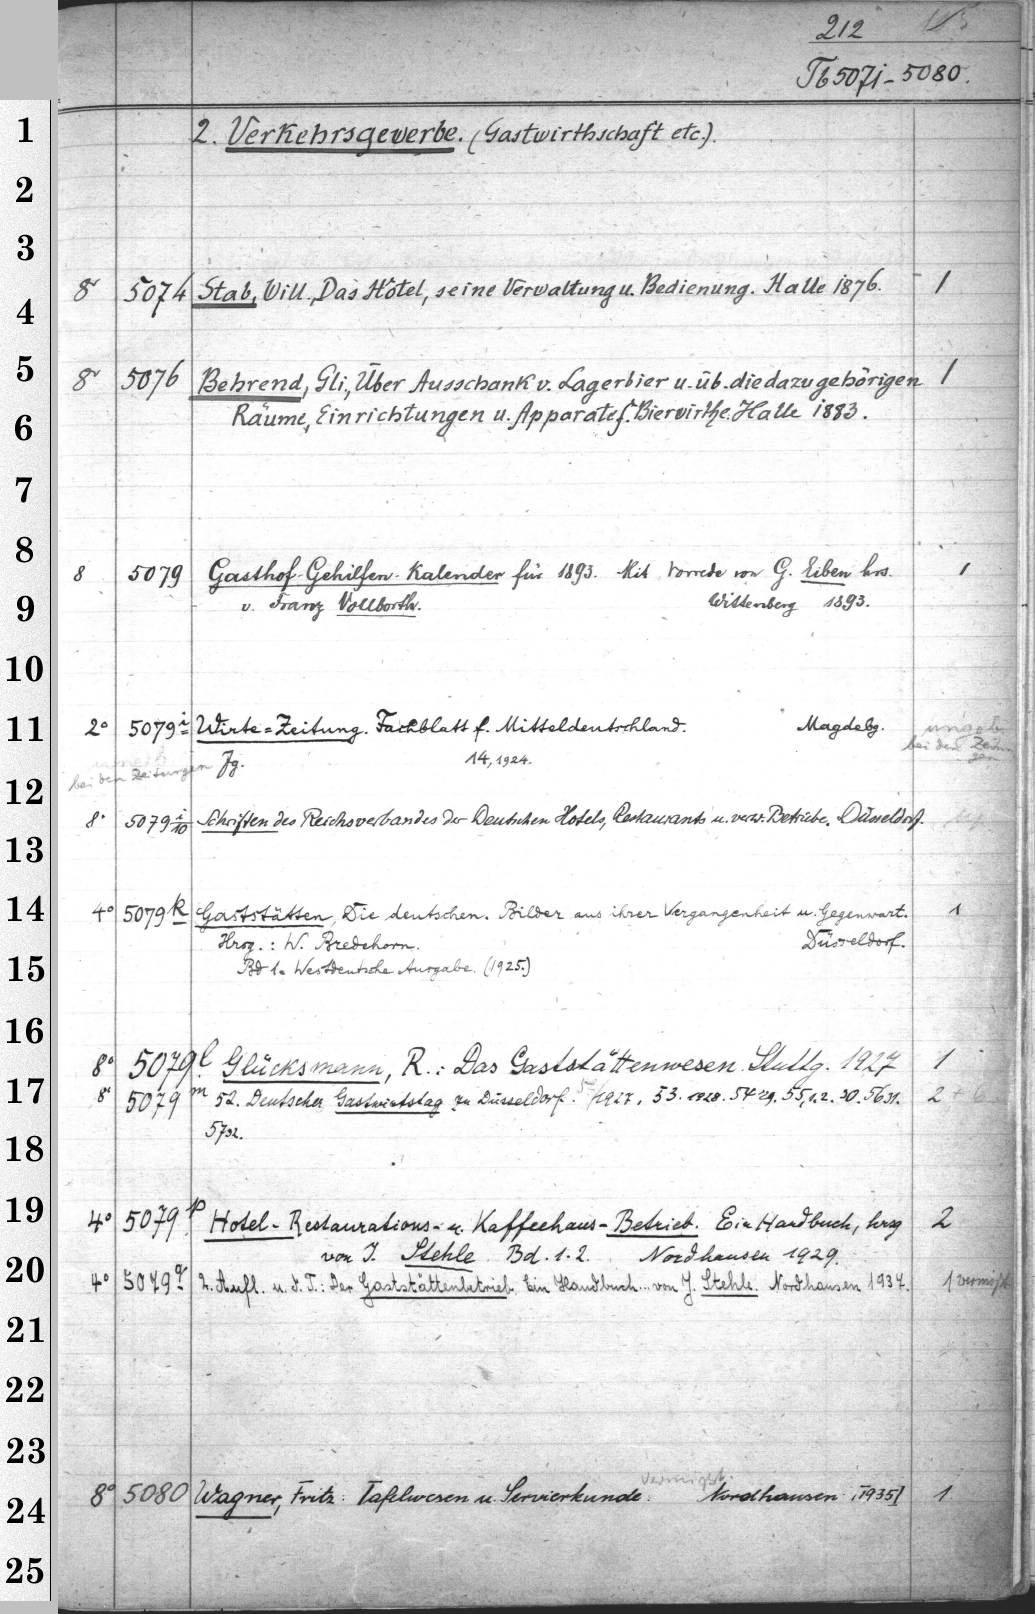 212
Tb 5071-5080.
1 2. Verkehrsgewerbe. (Gastwirthschaft etc.).
2
3
4 8° 5074 Stab, Will., Das Hôtel, seine Verwaltung u. Bedienung. Halle 1876. 1
5 8° 5076 Behrend, Gli., Über Ausschank v. Lagerbier u. üb. die dazugehörigen 1
6 Räume, Einrichtungen u. Apparate f. Bierwirthe. Halle 1883.
7
8 8 5079 Gasthof-Gehilfen-Kalender für 1893. Mit Vorrede von G. Eiben hrs. 1
9 v. Franz Vollborth. Wittenberg 1893.
10
11 2° 5079 i Wirte=Zeitung. Fachblatt f. Mitteldeutschland. Magdebg.
bei den Zeitungen Jg. 14, 1924. bei den Zeitun
gen
12
8° 5079 i/10 Schriften des Reichsverbandes der Deutschen Hotels, Restaurants u. verw. Betriebe. Düsseldorf.
13
14 4° 5079 k Gaststätten, Die deutschen. Bilder aus ihrer Vergangenheit u. Gegenwart. 1
Hrsg.: W. Bredehorn. Düsseldorf.
15 Bd 1. Westdeutsche Ausgabe. (1925.)
16
8° 5079 l Glücksmann, R.: Das Gaststättenwesen. Stuttg. 1927 1
17 8° 5079 m 52. Deutscher Gastwirtstag zu Düsseldorf. 1927, 53. 1928. 54 29. 55,1.2. 30. 56 31. 2 +
18 57 32.
19 4° 5079 p Hotel-Restaurations- u. Kaffeehaus-Betrieb. Ein Handbuch, hrsg 2
von J. Stehle Bd. 1.2. Nordhausen 1929.
20 4° 5079 q 2. Aufl. u. d. T.: Der Gaststättenbetrieb. Ein Handbuch... von J. Stehle. Nordhausen 1934. 1 vermißt
21
22
23
vermißt.
24 8° 5080 Wagner, Fritz: Tafelwesen u. Servierkunde. Nordhausen [1935] 1
25